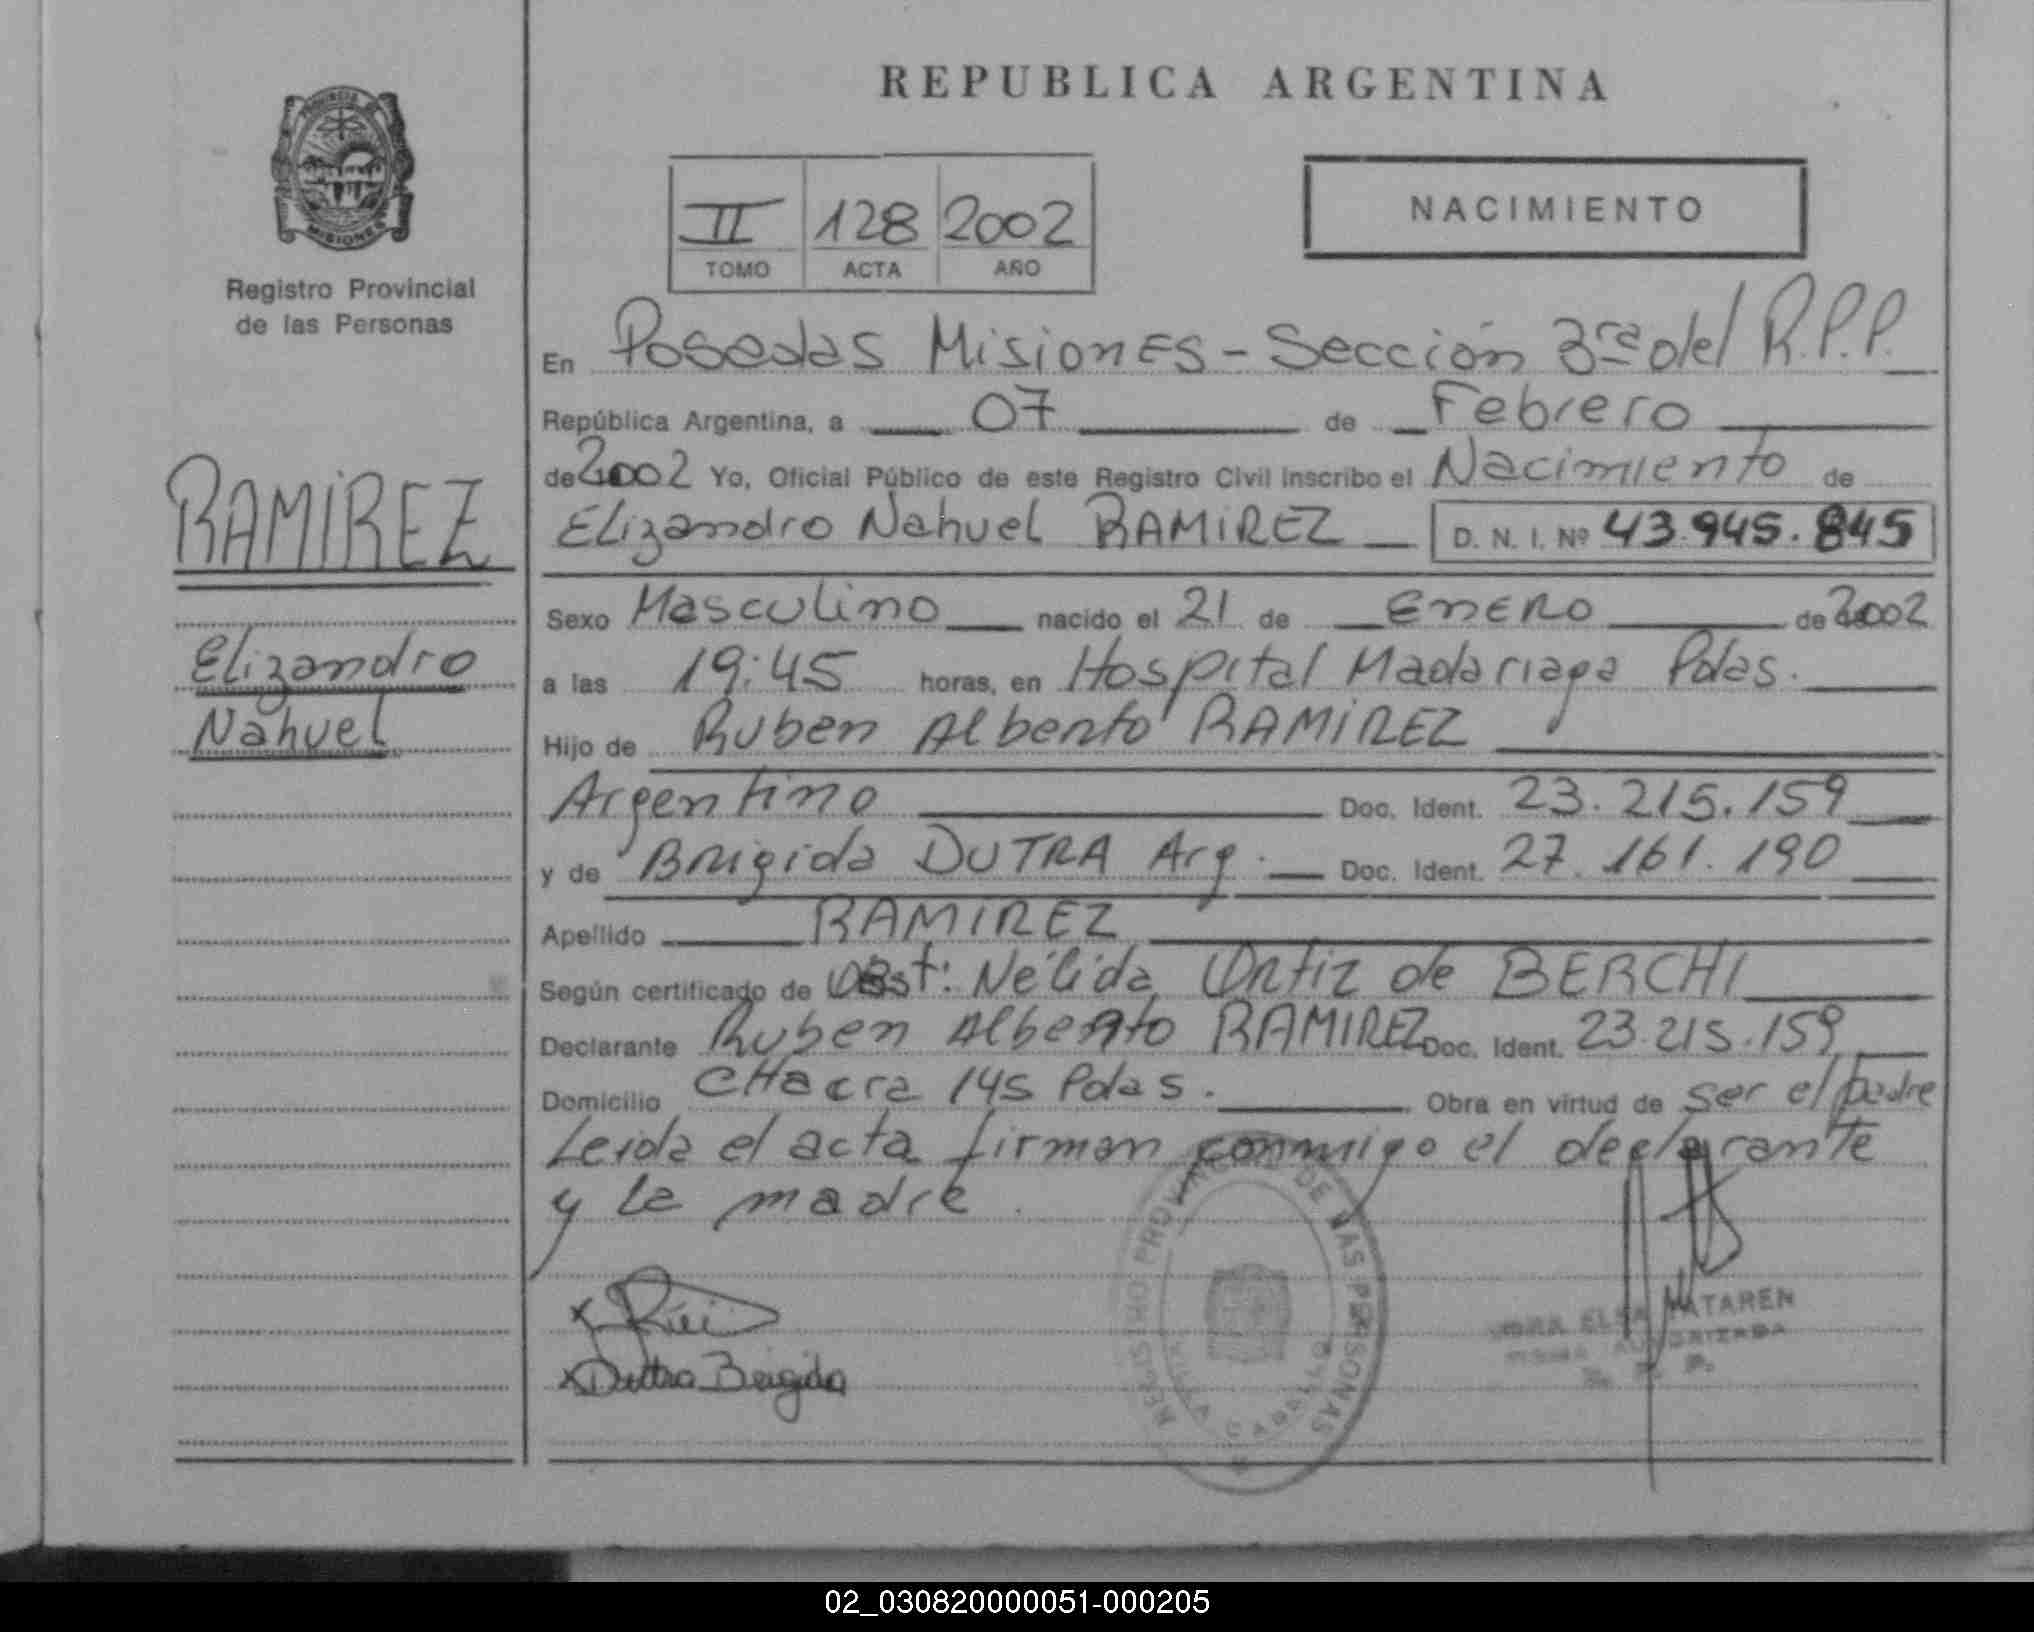 REPUBLICA ARGENTINA
PROVINCIA DE MISIONES
Registro Provincial
de las Personas
II 128 2002
TOMO ACTA AÑO
NACIMIENTO
RAMIREZ
Elizandro
Nahuel
En Posadas Misiones - Sección 3ra del R.P.P.
República Argentina, a 07 de Febrero
de 2002 Yo, Oficial Público de este Registro Civil inscribo el Nacimiento de
Elizandro Nahuel RAMIREZ D. N. I. Nº 43.945.845
Sexo Masculino nacido el 21 de Enero de 2002
a las 19:45 horas, en Hospital Madariaga Pdas.
Hijo de Ruben Alberto RAMIREZ
Argentino Doc. Ident. 23.215.159
y de Brigida DUTRA Arg. Doc. Ident. 27.161.190
Apellido RAMIREZ
Según certificado de Obst: Nélida Ortiz de BERCHI
Declarante Ruben Alberto RAMIREZ Doc. Ident. 23.215.159
Domicilio CHacra 145 Pdas. Obra en virtud de ser el padre
Leida el acta firman conmigo el declarante
y la madre
REGISTRO PROVINCIAL DE LAS PERSONAS
Duttra Brigida
ELSA MATAREN
FIRMA AUTORIZADA
R. P. P.
02_030820000051-000205